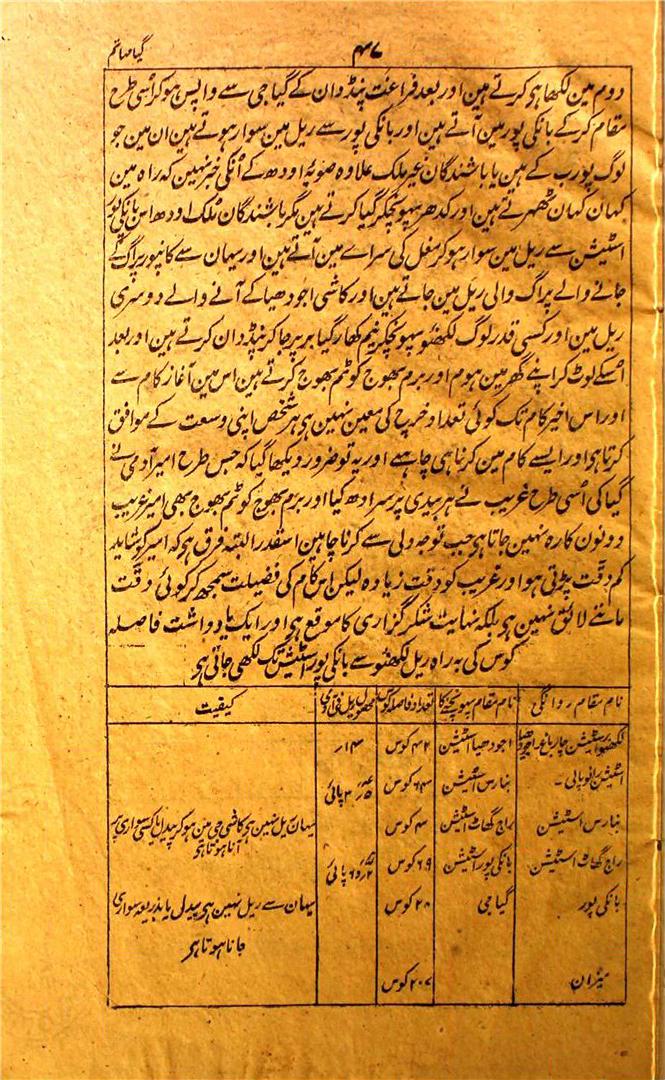 ۴۷
گیا مہاتم
دوم مین لکھا ہی کرتے ہین اور بعد فراغت پنڈدان کے گیا جی سے واپس ہو کر اسی طرح
مقام کر کے بانکی پور مین آتے ہین اور بانکی پور سے ریل مین سوار ہوتے ہین ان مین جو
لوگ پورب کے ہین یا باشندگان غیر ملک علاوہ صوبہ اودھ کے اُنکی خبر نہین کہ راہ مین
کہان کہان ٹھہرتے ہین اور کدھر پہونچکر گیا کرتے ہین مگر باشندگان ملک اودھ اس بانکی پور
اسٹیشن سے ریل مین سوار ہو کر مغل کی سراے مین آتے ہین اور یہان سے کانپور پراگ کے
جانے والے پراگ والی ریل مین جاتے ہین اور کاشی اجودھیا کے آنے والے دوسری
ریل مین اور کسی قدر لوگ لکھنؤ پہونچکر نیم کھار گیا بر پر جا کر پنڈدان کرتے ہین اور بعد
اسکے لوٹ کر اپنے گھر مین ہوم اور برم بھوج کوٹم بھوج کرتے ہین اس مین آغاز کام سے
اور اس اخیر کام تک کوئی تعداد خرچ کی معین نہین ہی ہر شخص اپنی وسعت کے موافق
کرتا ہی اور ایسے کام مین کرنا ہی چاہیے اور یہ تو ضرور دیکھا گیا کہ جس طرح امیر آدمی نے
گیا کی اُسی طرح غریب نے ہر بیدی پر سرادھ کیا اور برم بھوج کوٹم بھوج بھی امیر غریب
دونون کا رہ نہین جاتا ہی جب توجہ دلی سے کرنا چاہین اسقدر البتہ فرق ہی کہ امیر کو شاید
کم دقت پڑتی ہو اور غریب کو دقت زیادہ لیکن اس کام کی فضیلت سمجھ کر کوئی دقت
ماننے لائق نہین ہی بلکہ نہایت شکر گزاری کا موقع ہی اور ایک یادداشت فاصلہ
کوس کی بہ راہ ریل لکھنؤ سے بانکی پور اسٹیشن تک لکھی جاتی ہی
نام مقام روانگی نام مقام پہونچنے کا تعداد فاصلہ کوس محصول ریل فی آدمی کیفیت
لکھنؤ اسٹیشن چار باغ اجودھیا اسٹیشن ۴۲ کوس ۱۴ار
اسٹیشن رانوپالی ۔ بنارس اسٹیشن ۶۴ کوس ۳ پائی
بنارس اسٹیشن راج گھاٹ اسٹیشن ۴ کوس یہان ریل نہین ہی کاشی جی مین ہو کر پیدل یا کسی سواری پر
آنا ہوتا ہی
راج گھاٹ اسٹیشن بانکی پور اسٹیشن ۶۹ کوس ۶ پائی
بانکی پور گیا جی ۲۸ کوس یہان سے ریل نہین ہی پیدل یا بذریعہ سواری
جانا ہوتا ہی
میزان ۲۰۷ کوس